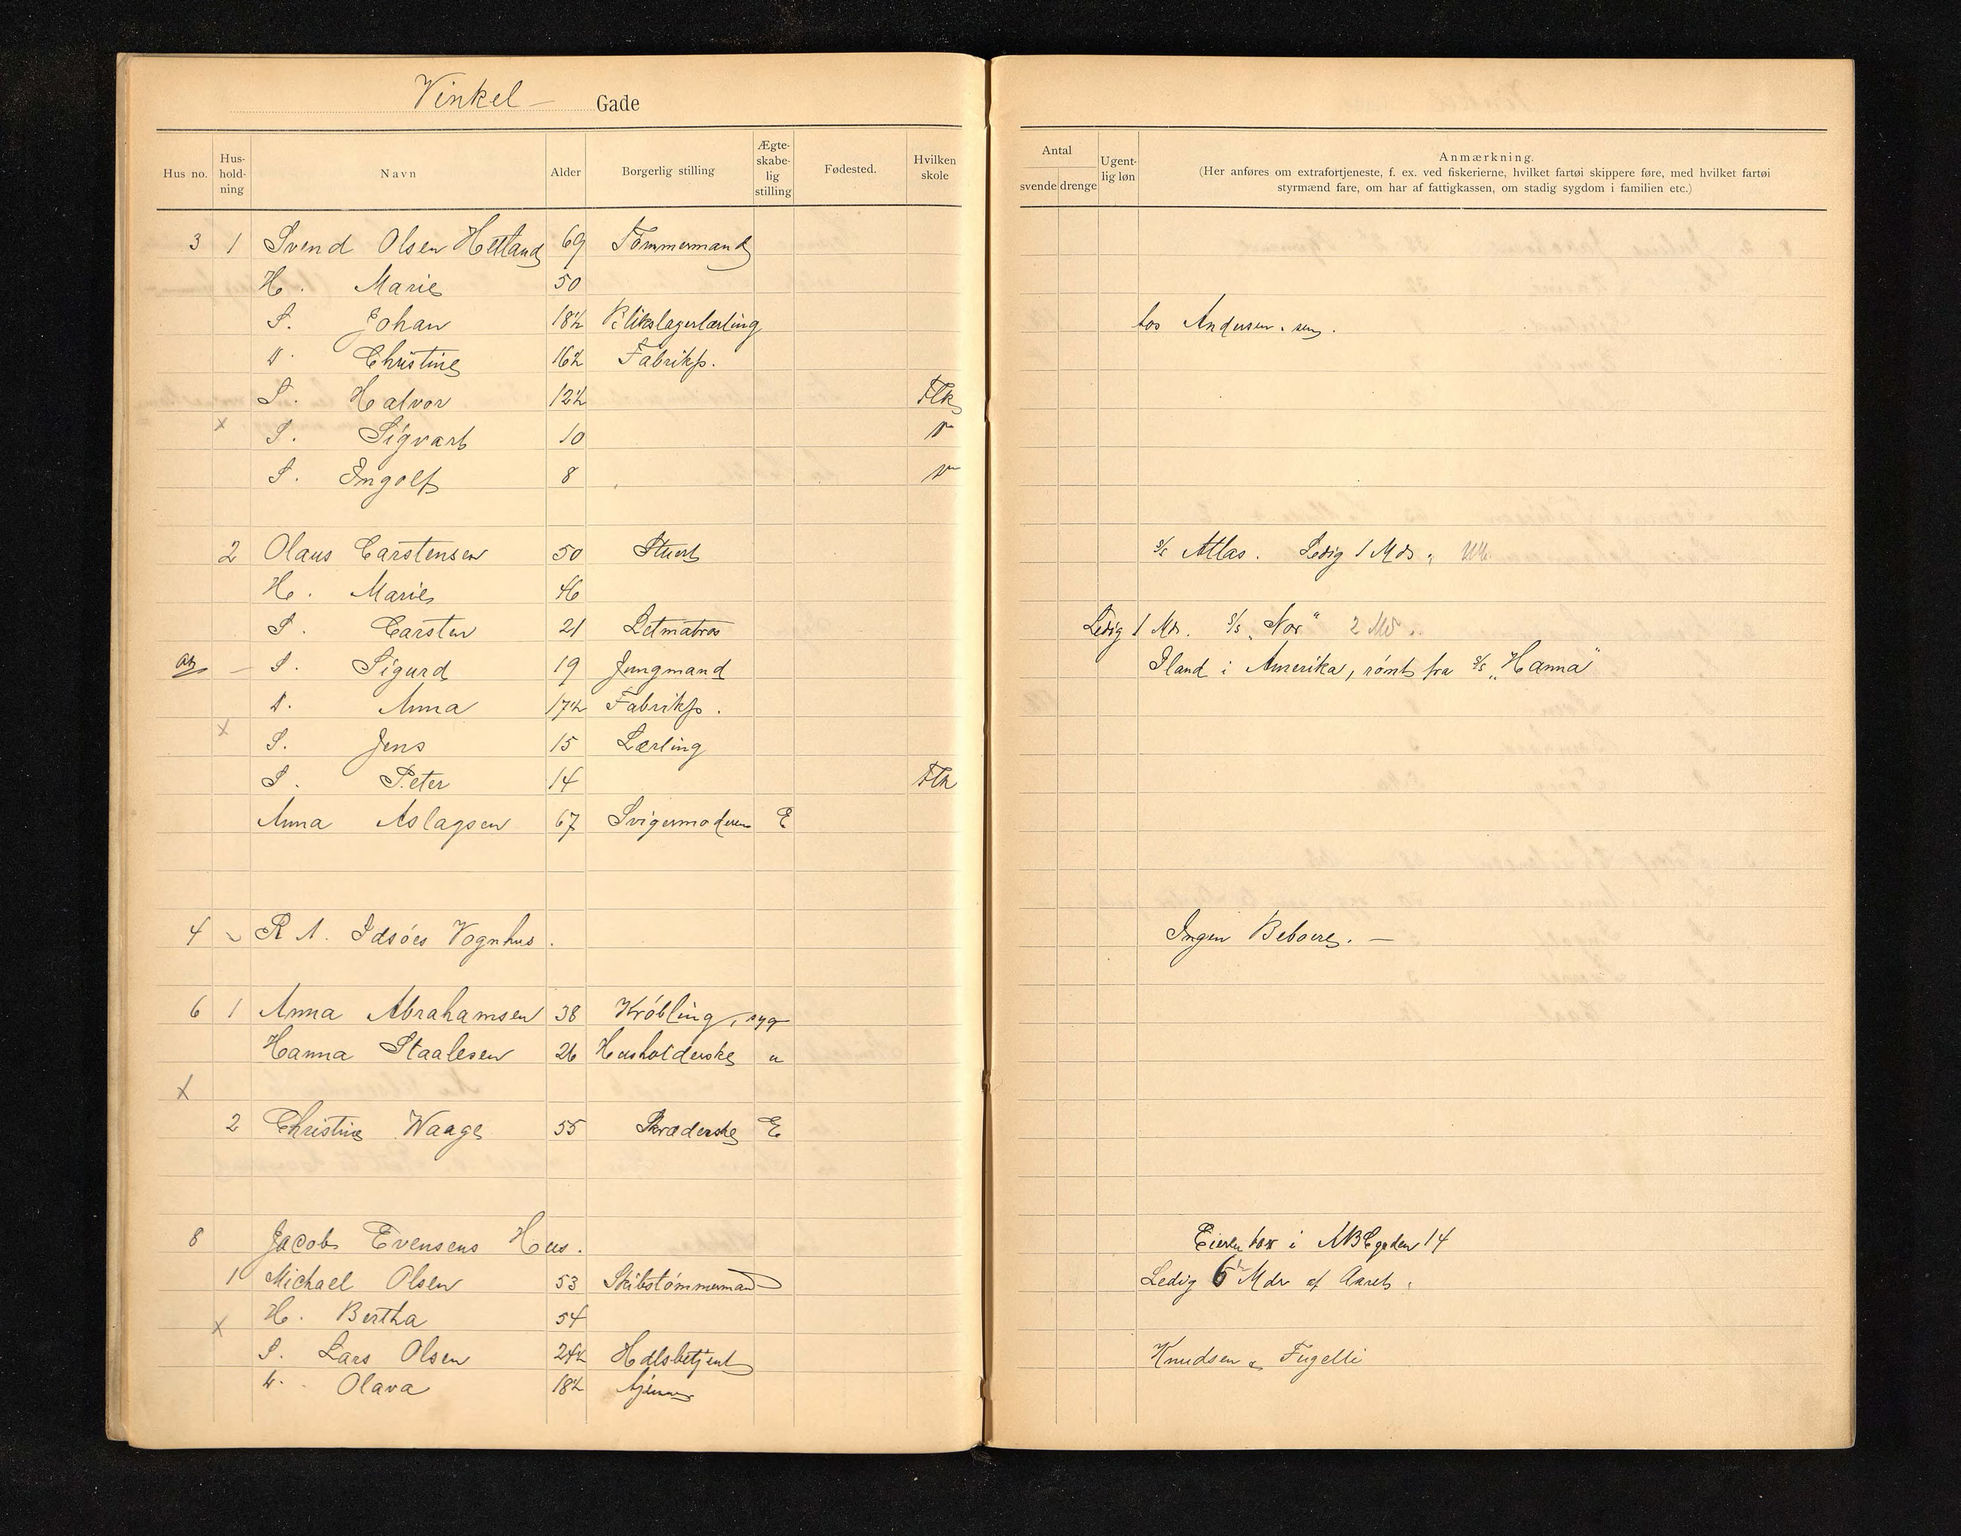 Vinkel — Gade
Hus no. Hus-hold-ning Navn Alder Borgerlig stilling Ægte-skabe-lig stilling Fødested. Hvilken skole
Antal svende drenge Ugent-lig løn Anmærkning.
(Her anføres om extrafortjeneste, f. ex. ved fiskerierne, hvilket fartøi skippere føre, med hvilket fartøi
styrmænd fare, om har af fattigkassen, om stadig sygdom i familien etc.)
3 1 Svend Olsen Hetland 69 Tømmermand
H. Marie 50
S. Johan 18½ Blikslagerlærling hos Andersen. sen.
D. Christine 16½ Fabrikp.
S. Halvor 12½ Flk
x S. Sigvart 10 "
S. Ingolf 8 "
2 Olaus Carstensen 50 Stuert s/s Atlas. Ledig 1 Md.
H. Marie 46
S. Carsten 21 Letmatros Ledig 1 Md. s/s „Nor" 2 Md.
S. Sigurd 19 Jungmand Iland i Amerika, rømt fra s/s „Hanna"
D. Anna 17½ Fabrikp.
x S. Jens 15 Lærling
S. Peter 14 Flk
Anna Aslagsen 67 Svigermoderen E
4 Idsøes Vognhus. Ingen Beboere. —
6 1 Anna Abrahamsen 38 Krøbling, syg
Hanna Staalesen 26 Husholderske u
x
2 Christine Waage 55 Skræderske E
8 Jacob Evensens Hus. Eieren bor i ABCgaden 14
1 Michael Olsen 53 Skibstømmermand Ledig 6 Mdr af Aaret.
x H. Bertha 54
S. Lars Olsen 24½ Hdlsbetjent Knudsen & Fugelli
D. Olava 18½ tjener